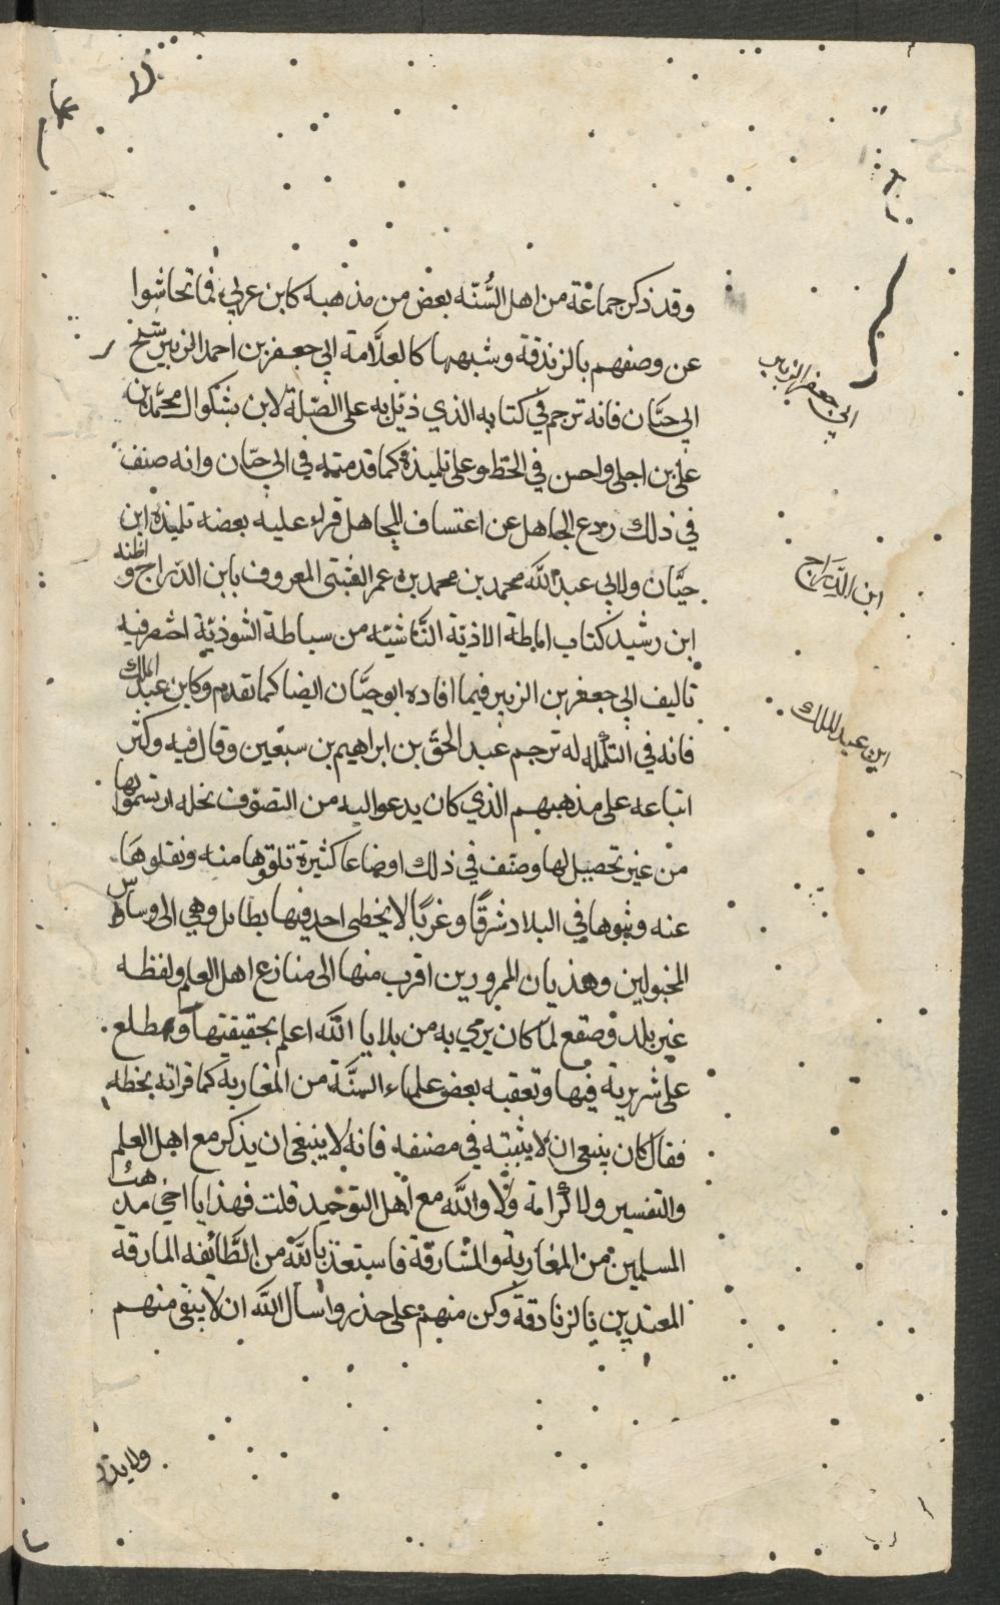 وقد ذكر جماعة من اهل السُّنّه بعض من مذهبه كابن عربي فما تحاشوا
عن وصفهم بالزندقة وشبهها كالعلَّامة ابي جعفر بن احمد الزبير شيخ
ابي حيَّان فانه ترجم في كتابه الذي ذيّل به على الصّلة لابن بشكوال محمّد بن
علي بن احلى واحسن في الحَطّ وعلى تلميذه كما قدمته في ابي حيّان وانه صنف
في ذلك ردع الجاهل عن اعتساف المجاهل قراء عليه بعضه تلميذه ابن
حيَّان ولابي عبد اللَّه محمد بن محمد بن عمر المعروف بابن الدّراج واظنه
ابن رشيد كتاب اماطة الاذيّة النَّاشيّه من سباطة الشوذيّة اختصر فيه
تاليف ابي جعفر بن الزبير فيما افاده ابو حيَّان ايضا كما تقدم وكابن عبد الملك
فانه في التكمله له ترجم عبد الحقّ بن ابراهيم بن سبعين وقال فيه وكثر
اتباعه على مذهبهم الذي كان يدعوا اليه من التصوّف نحله ارتسموا بها
من غير تحصيل لها وصنف في ذلك اوضاعا كثيرة تلقوها منه ونقلوها
عنه وبثوها في البلاد شرقًا وغربًا لا يخطى احد فيها بطايل وهي الى وساوس
المخبولين وهذيان الممرورين اقرب منها الى منازع اهل العلم ولفظه
غير بلد وصقع لما كان يرمي به من بلايا اللَّه اعلم بحقيقتها وهو مطلع
على سريرته فيها وتعقبه بعض علماء السنَّة من المغاربة كما قراته بخطه
فقال كان ينبغي ان لا يثبته في مصنفه فانه لا ينبغي ان يذكر مع اهل العلم
والتفسير ولا كرامة ولا واللَّه مع اهل التوحيد قلت فهذا يا اخي مذهب
المسلمين من المغاربة والمشارقة فاستعذ باللَّه من الطَّائفه المارقة
المعتدين بالزنادقة وكن منهم على حذر واسأل اللَّه ان لا يبقى منهم
ولا يذر
ابي جعفر الزبير
ابن الدّراج
ابن عبد الملك